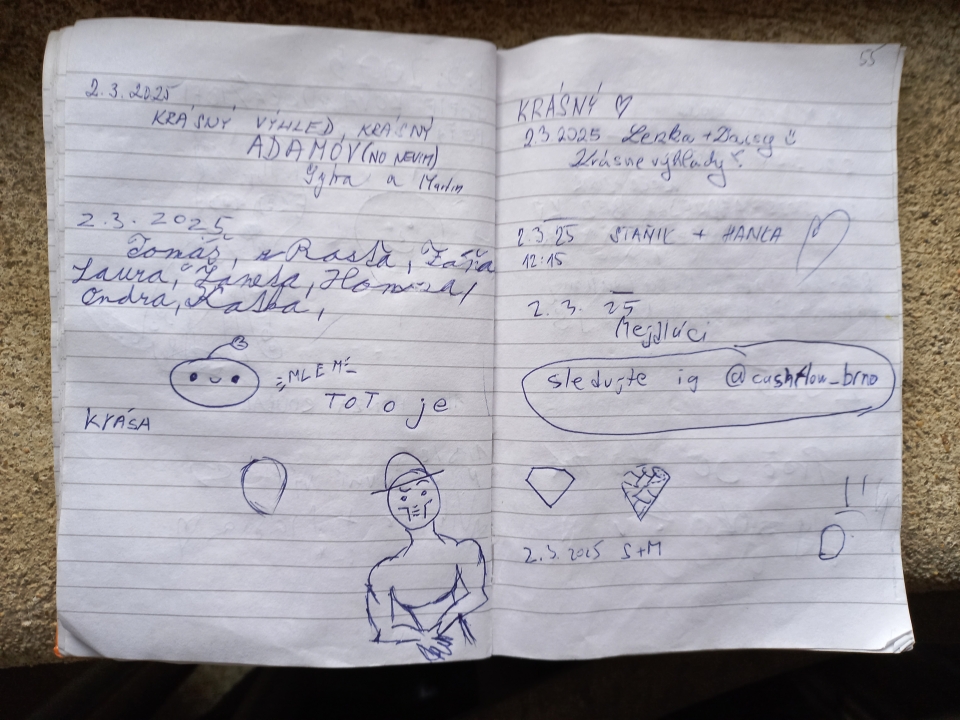 2.3.2025
KRÁSNÝ VÝHLED, KRÁSNÝ
ADAMOV (NO NEVIM)
a Martin
2.3.2025
Tomáš, Rasťa, Zářa
Laura, Žaneta, Honza,
Ondra, Kaťka,
MLEM
TOTO je
KRÁSA
55
KRÁSNÝ ♡
2.3 2025 Lenka + Daisy
Krásne výhlady
2.3 25 STAŇIK + HANKA
12:15
2.3. 25
sledujte ig @cashflow_brno
2.3.2025 S+M